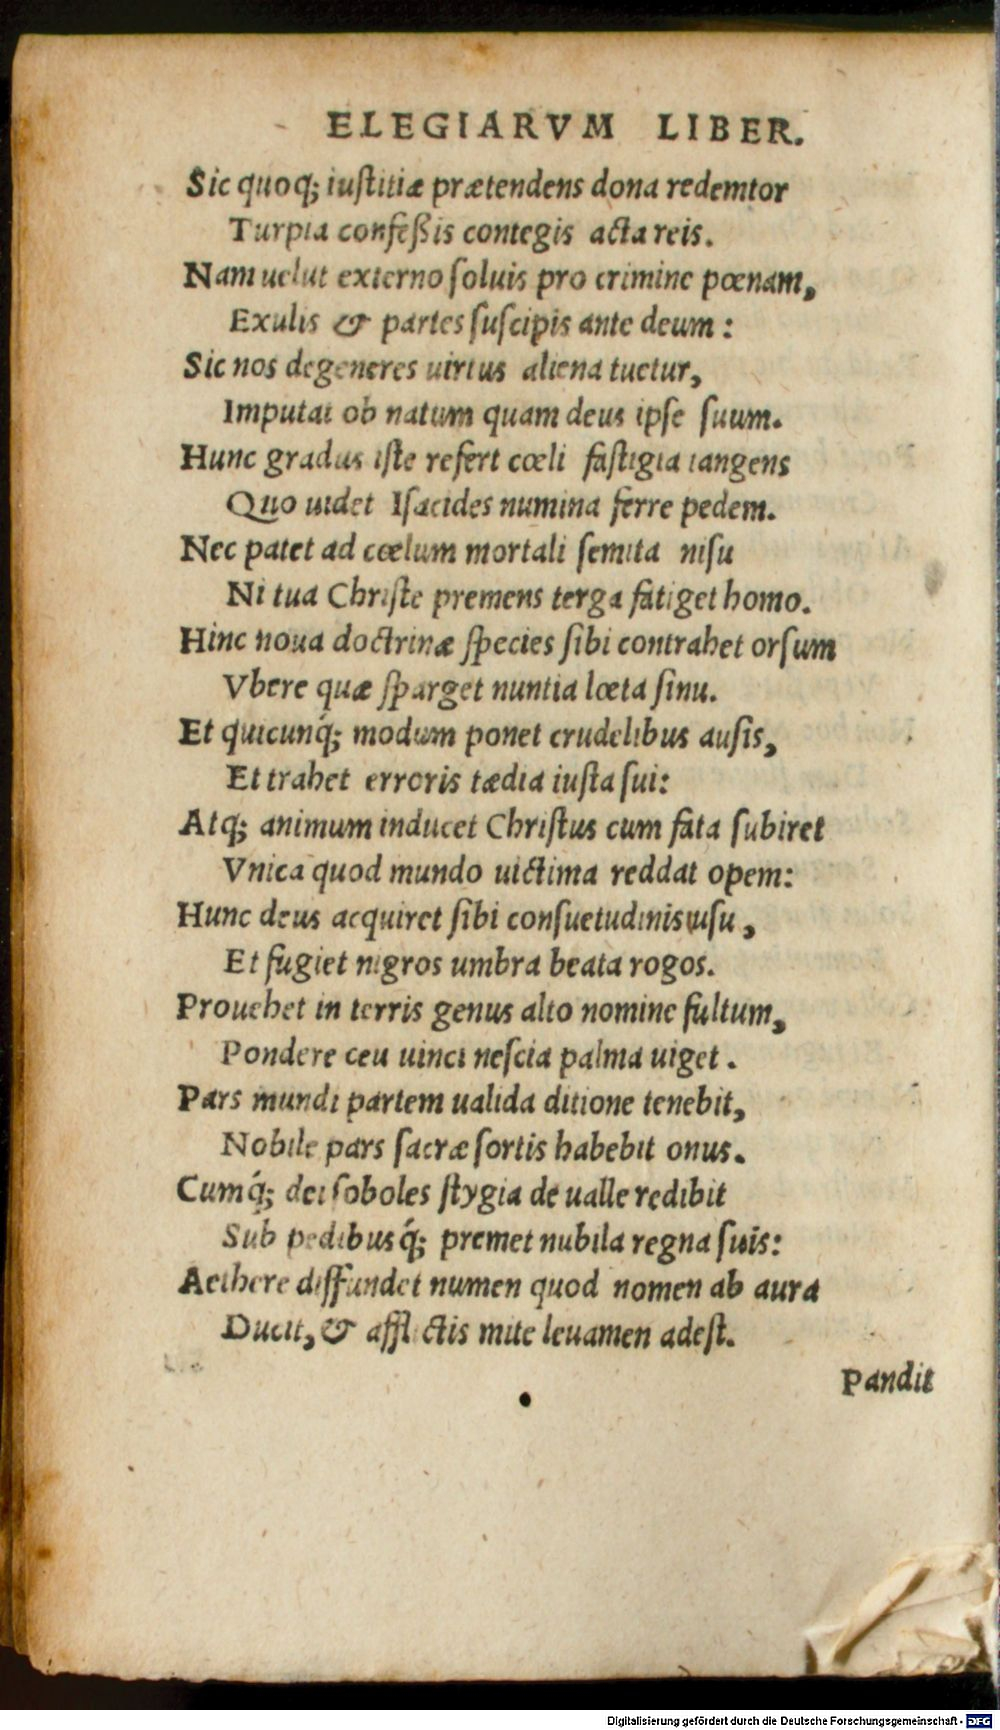 ELEGIARVM LIBER.
Sic quoq; iuſtitiæ prætendens dona redemtor
Turpia confeßis contegis acta reis.
Nam uelut externo ſoluis pro crimine pœnam,
Exulis & partes ſuſcipis ante deum:
Sic nos degeneres uirtus aliena tuetur,
Imputat ob natum quam deus ipſe ſuum.
Hunc gradus iſte refert cœli faſtigia tangens
Quo uidet Iſacides numina ferre pedem.
Nec patet ad cœlum mortali ſemita niſu
Ni tua Chriſte premens terga fatiget homo.
Hinc noua doctrinæ ſpecies ſibi contrahet orſum
Vbere quæ ſparget nuntia lœta ſinu.
Et quicunq́; modum ponet crudelibus auſis,
Et trahet erroris tædia iuſta ſui:
Atq; animum inducet Chriſtus cum fata ſubiret
Vnica quod mundo uictima reddat opem:
Hunc deus acquiret ſibi conſuetudinis uſu,
Et fugiet nigros umbra beata rogos.
Prouehet in terris genus alto nomine fultum,
Pondere ceu uinci neſcia palma uiget.
Pars mundi partem ualida ditione tenebit,
Nobile pars ſacræ ſortis habebit onus.
Cumq́; dei ſoboles ſtygia de ualle redibit
Sub pedibusq́; premet nubila regna ſuis:
Aethere diffundet numen quod nomen ab aura
Ducit, & afflictis mite leuamen adeſt.
Pandit
Digitalisierung gefördert durch die Deutsche Forschungsgemeinschaft - DFG